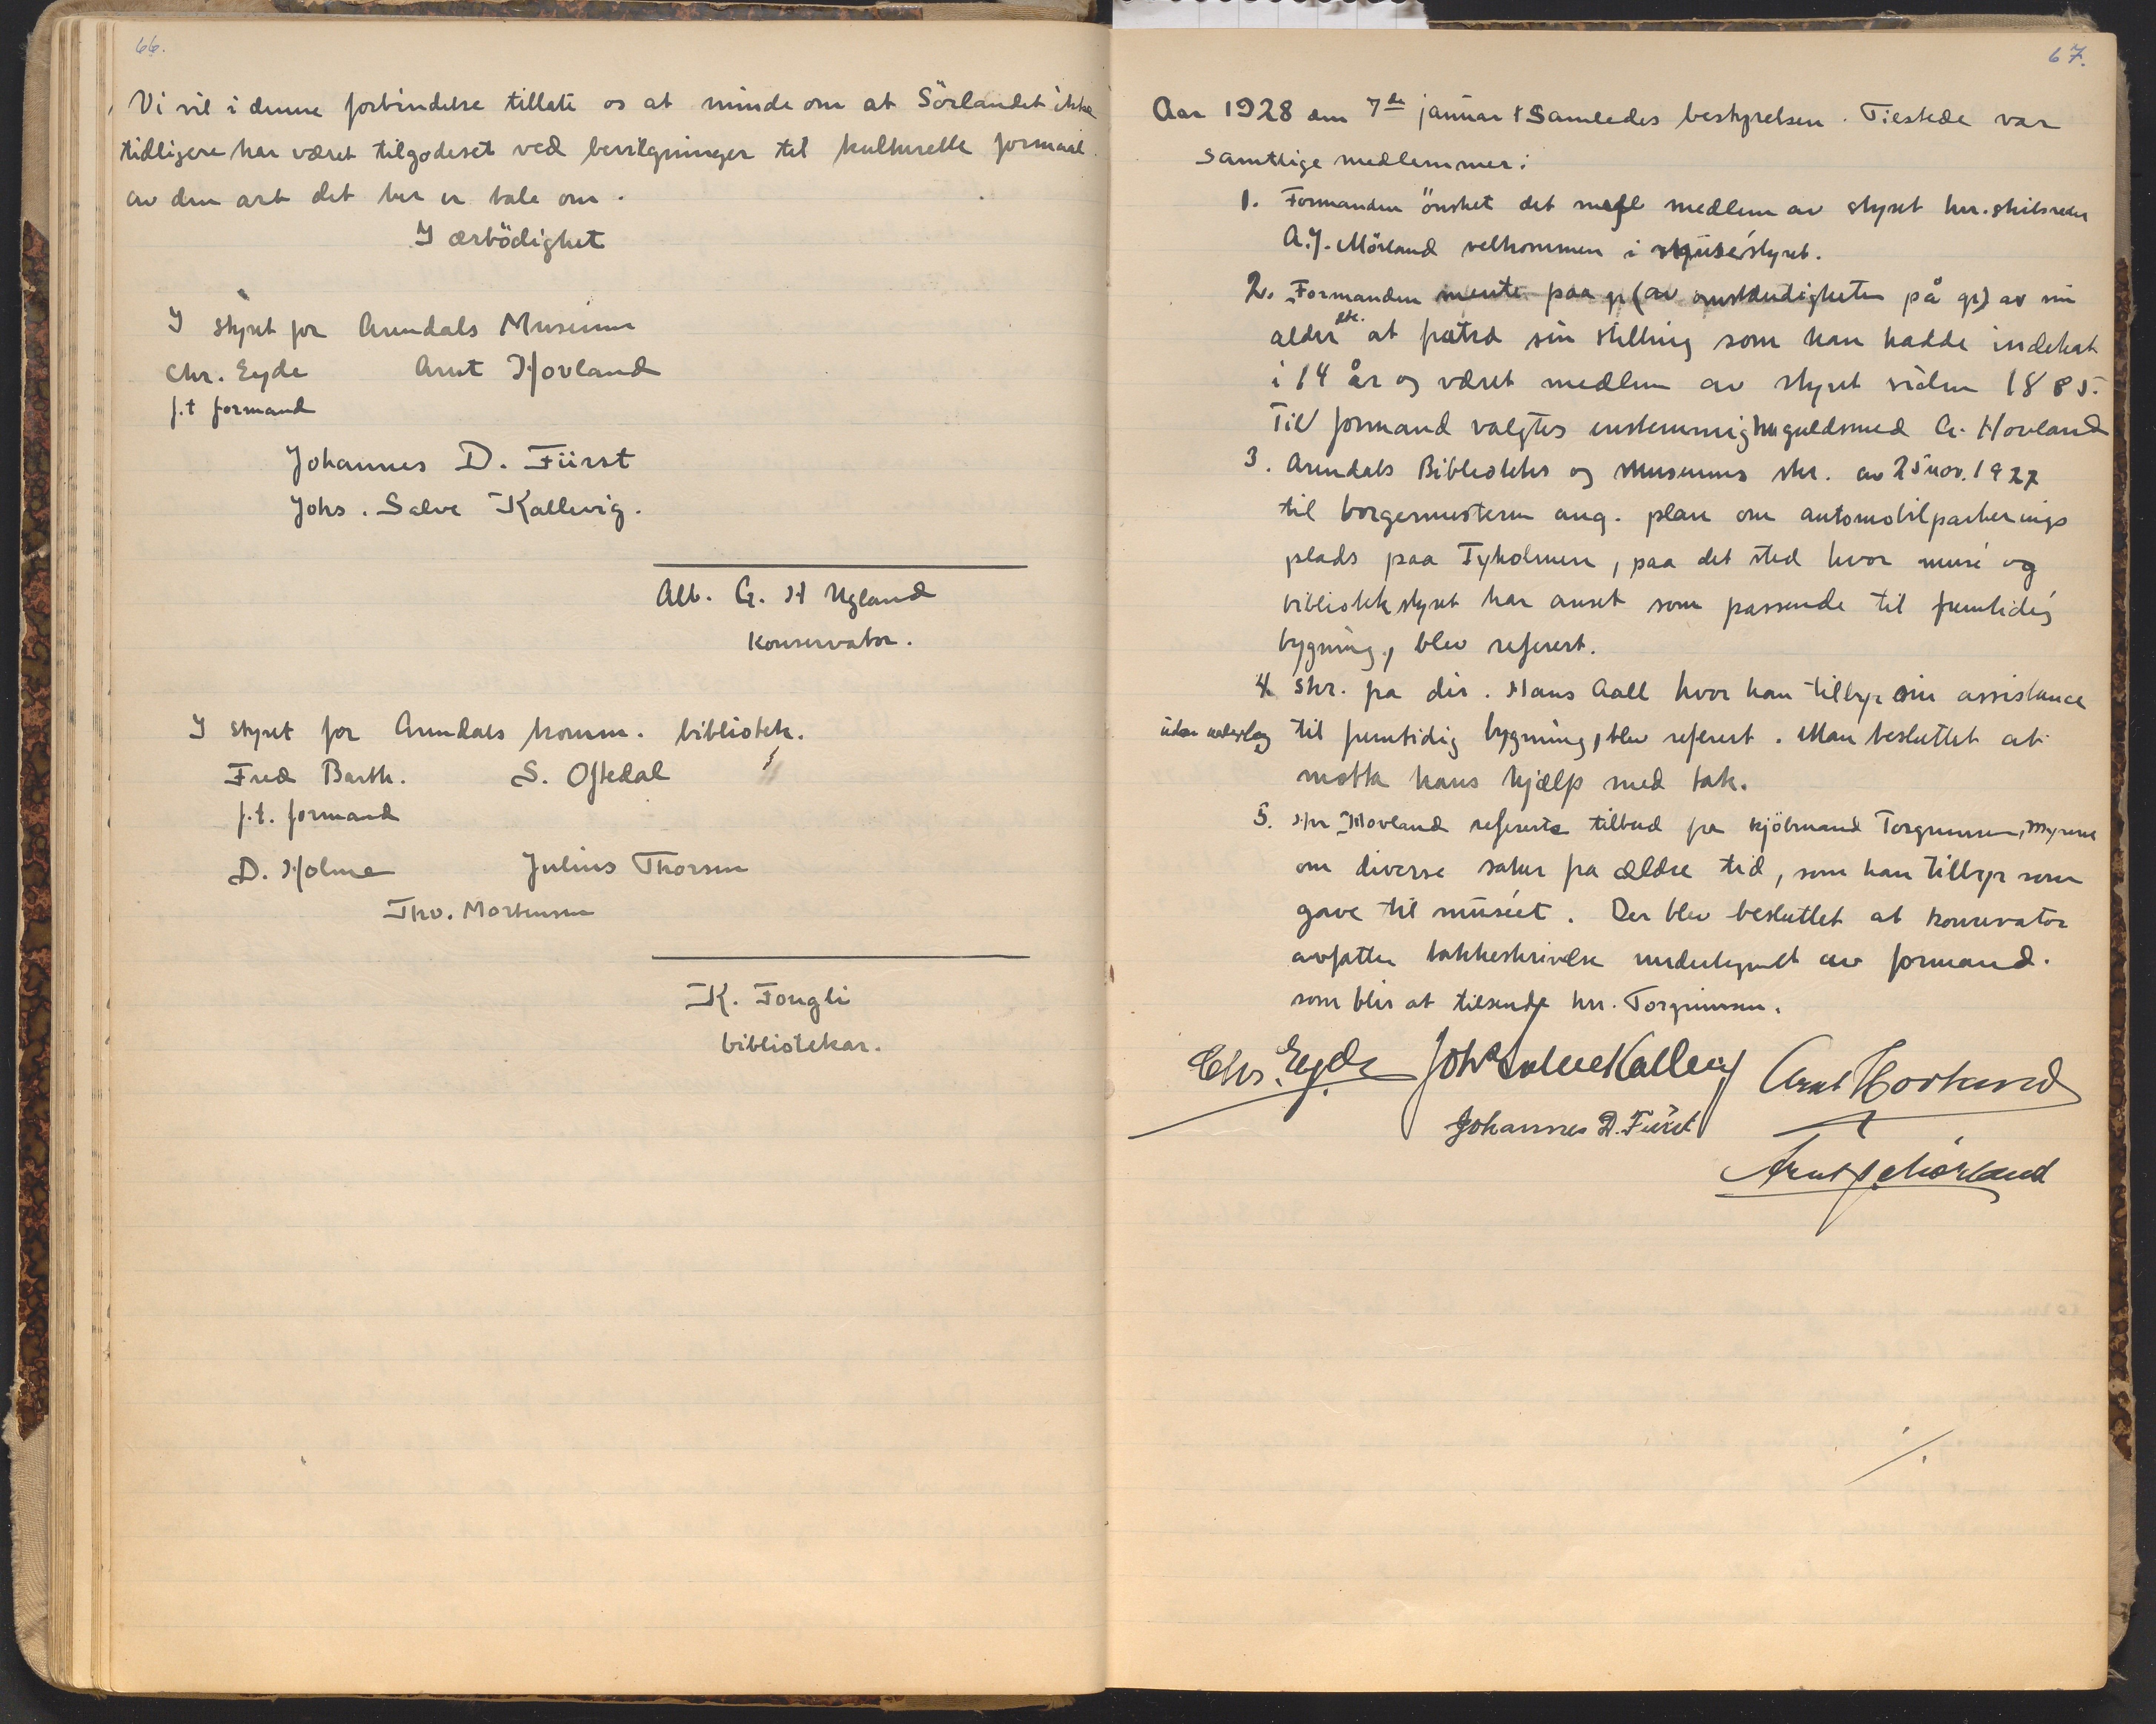 66.
Vi vil i denne forbindelse tillate os at minde om at Sörlandet ikke
tidligere har været tilgodeset ved bevilgninger til kulturelle formaal
av den art det her er tale om.
I ærbödighet
I styret for Arendals Museum
Chr. Eyde Arnt Hovland
f.t formand
Johannes D. Fürst
Johs. Salve Kallevig.
Alb. G. H Ugland
Konservator.
I styret for Arendals komm. bibliotek.
Fred Barth. S. Oftedal
f.t. formand
D. Holme Julius Thorsen
Thv. Mortensen
K. Fongli
bibliotekar.
67.
Aar 1928 den 7de januar samledes bestyrelsen. Tilstede var
samtlige medlemmer:
1. Formanden önsket det medlem av styret hrr. skibsreder
A.J. Mörland velkommen i musé styret.
2. Formanden mente paa gr (av omstændigheten på gr) av sin
alder etc. at fratræ sin stilling som han hadde indehat
i 14 år og været medlem av styret siden 1885.
Til formand valgtes enstemmig hr guldsmed A. Hovland
3. Arendals Biblioteks og Museums skr. av 25 nov. 1927
til borgermesteren ang. plan om automobilparkerings
plads paa Tyholmen, paa det sted hvor musé og
bibliotekstyret har anset som passende til fremtidig
bygning, blev referert.
4 Skr. fra dir. Hans Aall hvor han tilbyr sin assistance
uten vederlag til fremtidig bygning, blev referert. Man besluttet at
motta hans hjælp med tak.
5. Hr Hovland refererte tilbud fra kjöbmand Torgrimsen, Myrene
om diverse saker fra ældre tid, som han tilbyr som
gave til muséet. Der blev besluttet at konservator
avfatter takkeskrivelse undertegnet av formand.
som blir at tilsende hrr. Torgrimsen.
Chr. Eyde Johs Salve Kallevig Arnt Hovland
Johannes D. Fürst
Arnt J. Mörland